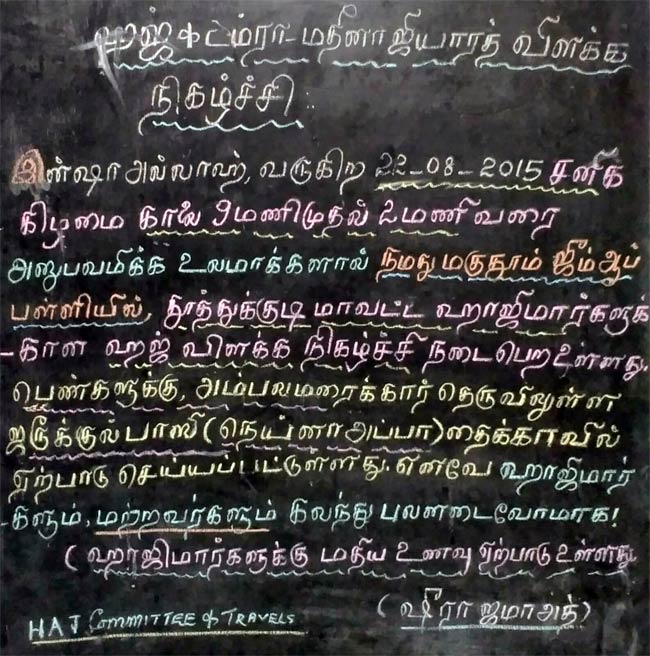 ஹஜ் + உம்ரா-மதீனா ஜியாரத் விளக்க
நிகழ்ச்சி:
இன்ஷா அல்லாஹ், வருகிற 22-08-2015 சனிக்
கிழமை காலை 9மணிமுதல் 2மணிவரை
அனுபவமிக்க உலமாக்களால் நமது மகுதூம் ஜும்ஆப்
பள்ளியில், தூத்துக்குடி மாவட்ட ஹாஜிமார்களுக்
-கான ஹஜ் விளக்க நிகழ்ச்சி நடைபெற உள்ளது.
பெண்களுக்கு, அம்பலமரைக்கார் தெருவிலுள்ள
ஜரூக்குல்பாஸி (நெய்னாஅப்பா) தைக்காவில்
ஏற்பாடு செய்யப்பட்டுள்ளது. எனவே ஹாஜிமார்
-களும், மற்றவர்களும் கலந்து பலனடைவோமாக!
(ஹாஜிமார்களுக்கு மதிய உணவு ஏற்பாடு உள்ளது
HAJ COMMITTEE & TRAVELS (ஷுரா ஜமாஅத்)